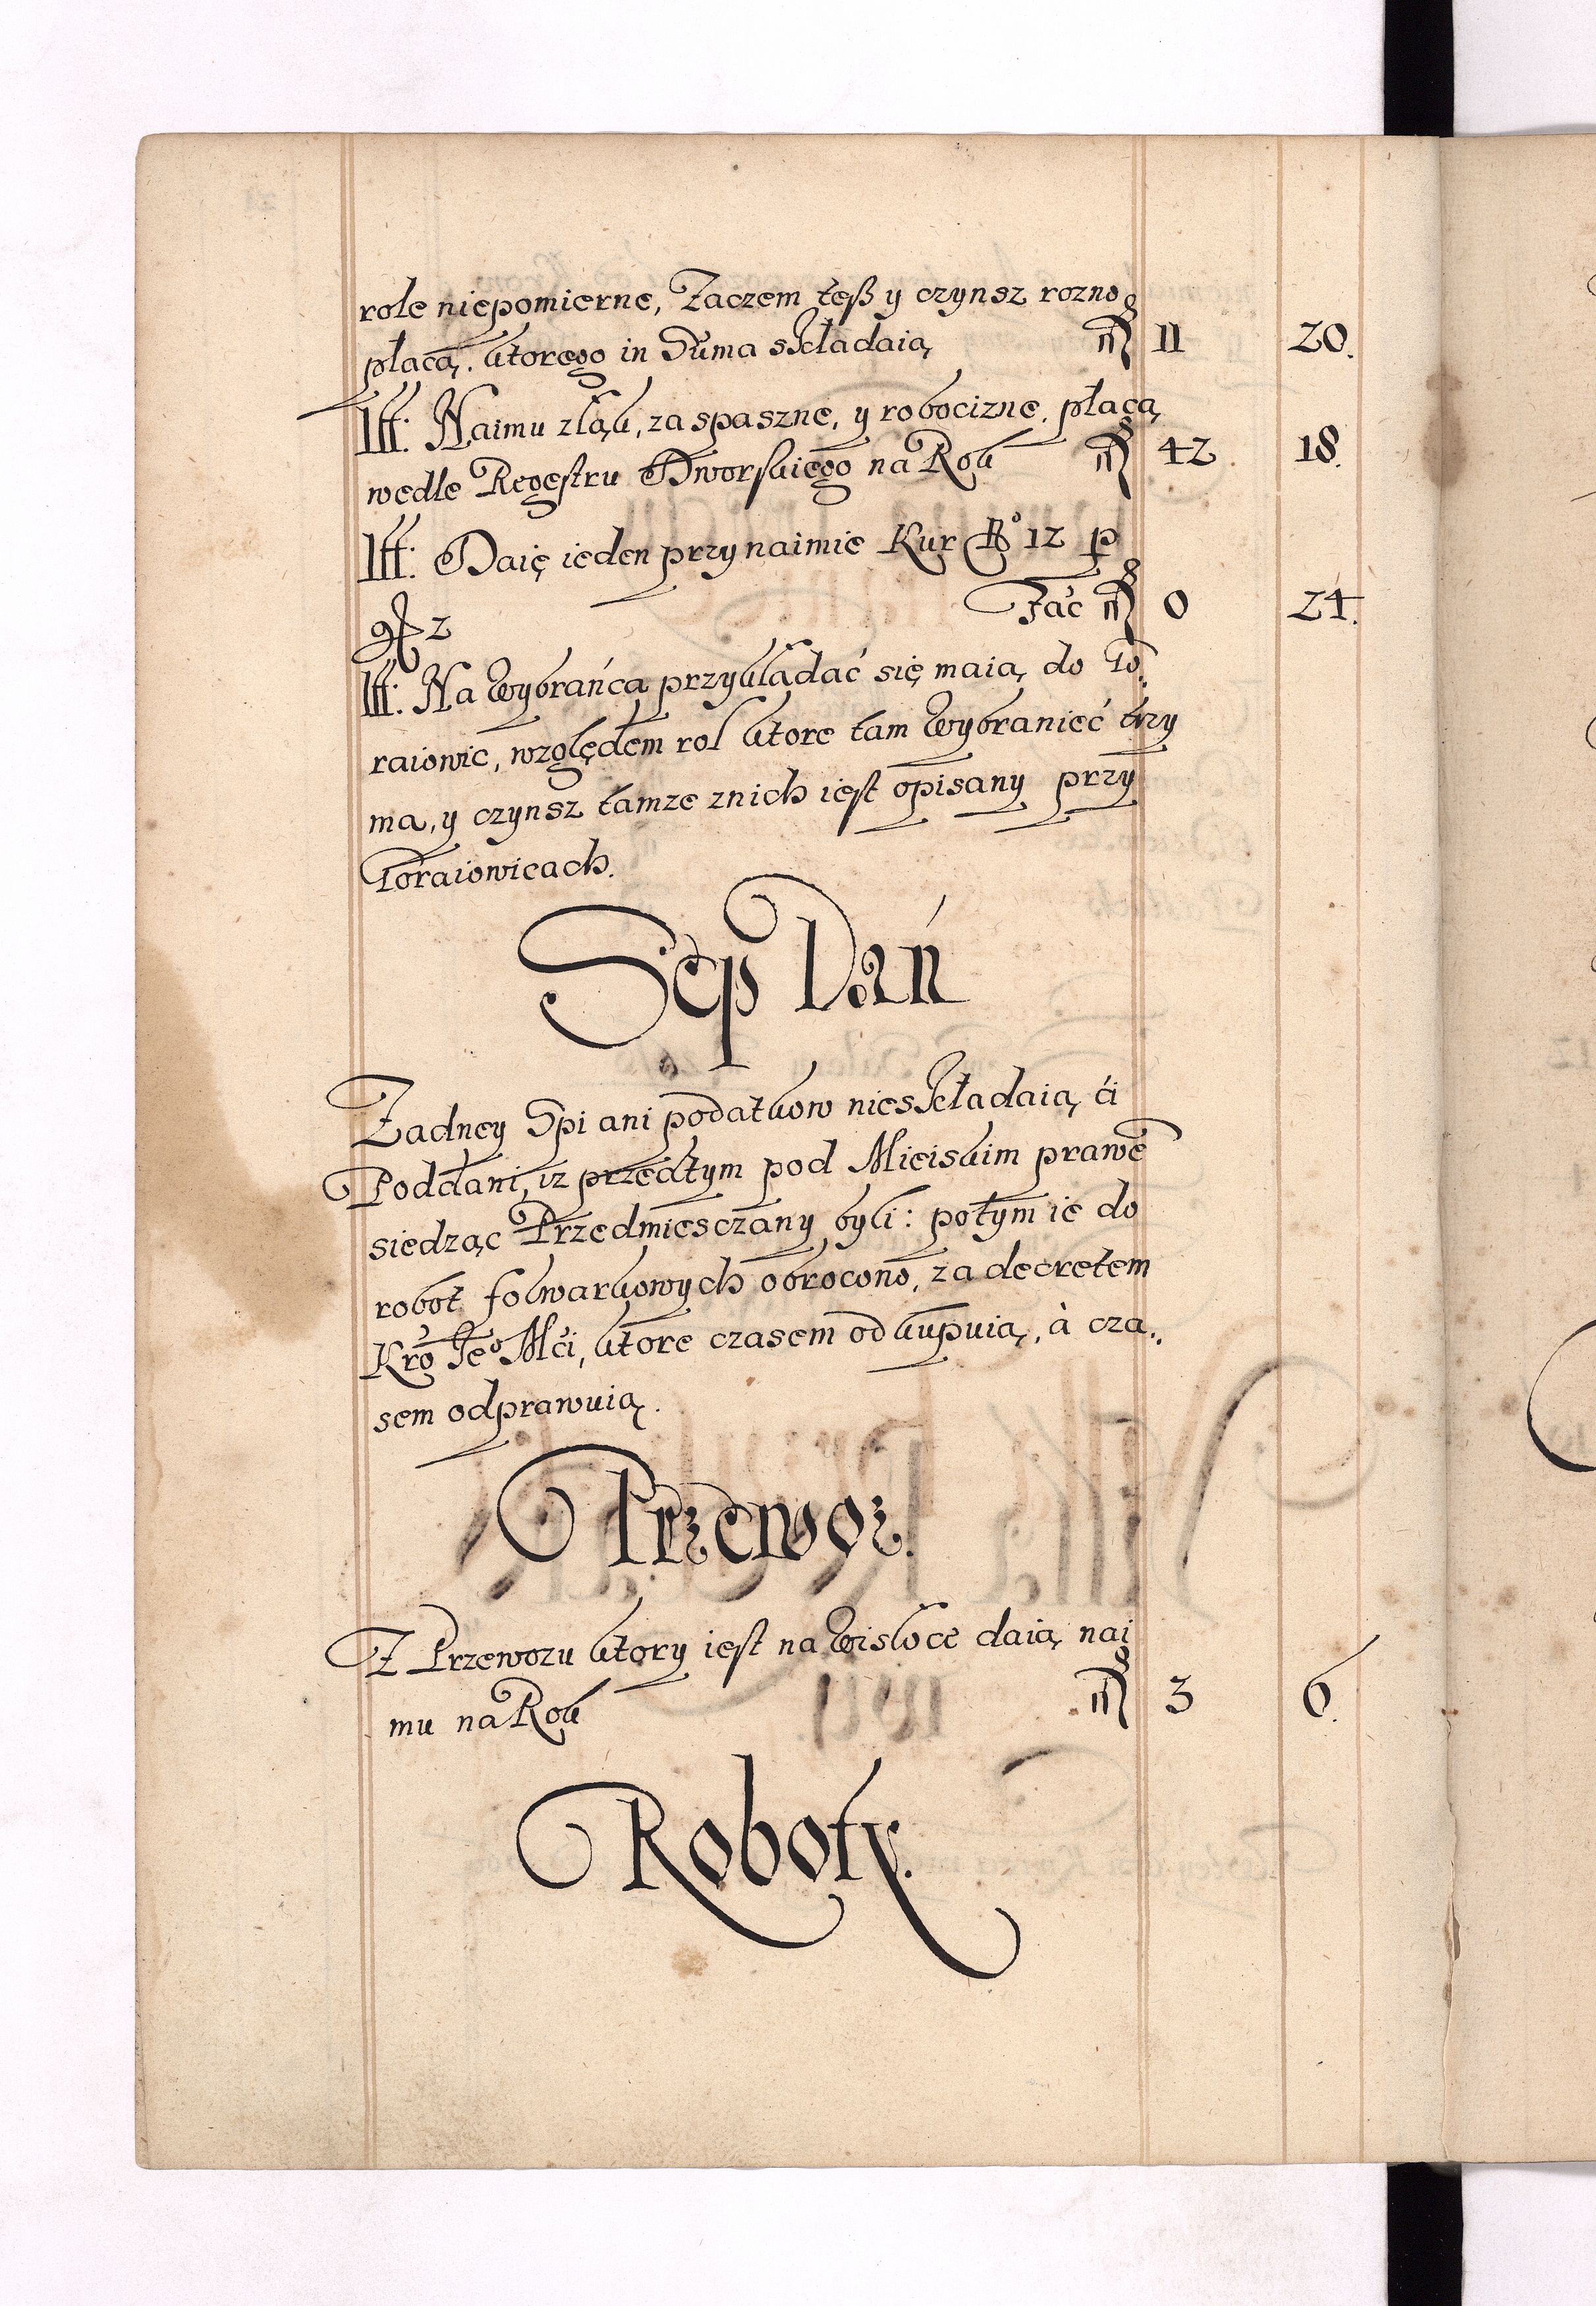 role niepomierne, Zaczem teß y czynsz rozno
płacą. ktorego in Suma składaią 11 20.
Itt: Naimu złąk, za spaszne, y robocizne, płacą
wedle Regestru Dworskiego na Rok 42 18.
Itt: Daię ieden przynaimie Kur No 12 p
gr 2 Fac 0 24.
Itt: Na Wybrańca przykładać się maią do To:
raiowic, względem rol ktore tam Wybraniec trzy
ma, y czynsz tamze znich iest opisany przy
Toraiowicach.
Sep Dań
Zadney Spi ani podatkow nieskładaią ći
Poddani, iz przedtym pod Mieiskim prawe
siedząc Przedmiesczany byli: potym ie do
robot folwarkowych obrocono, za decretem
Kro Jeo Mći, ktore czasem odkupuią, à cza:
sem odprawuią.
Przewoz.
Z Przewozu ktory iest na Wisłoce daią nai
mu na Rok 3 6.
Roboty.